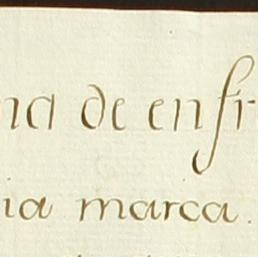 na de enfr
ia marca.